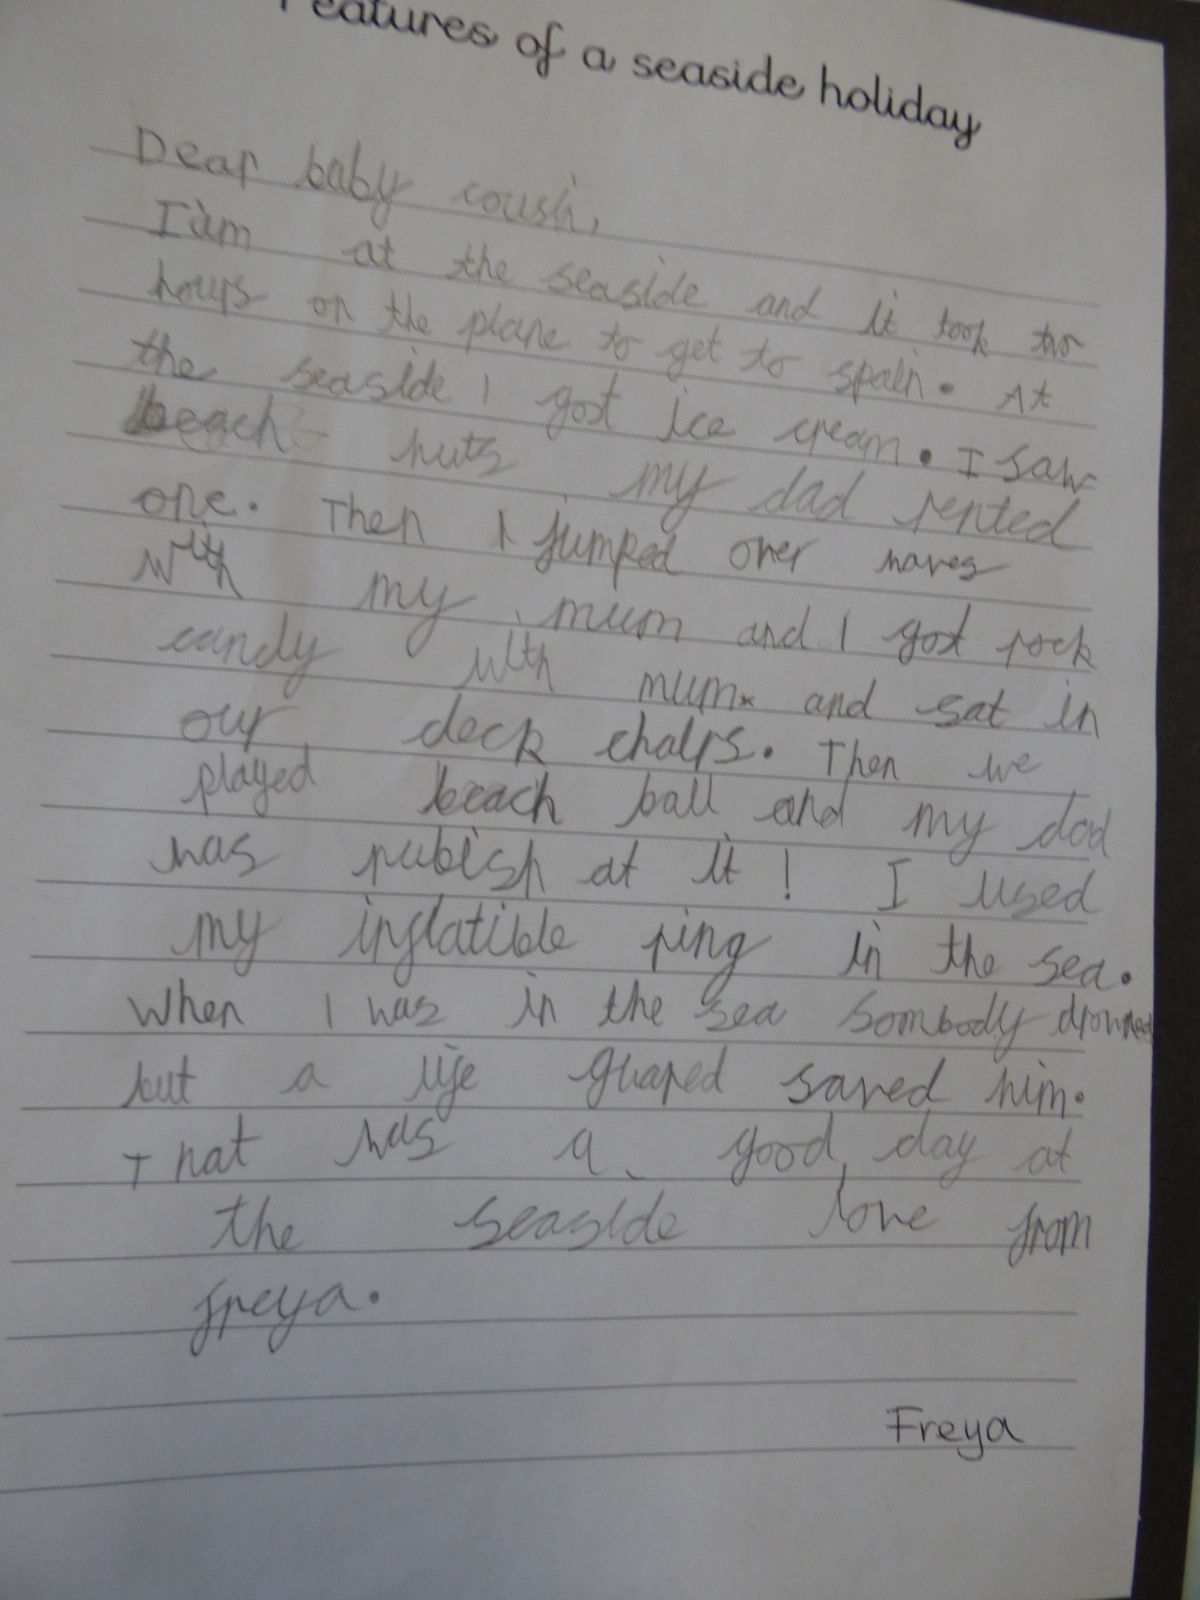 Features of a seaside holiday
Dear baby cousin,
I am at the seaside and it took two
hours on the plane to get to spain. At
the seaside I got ice cream. I saw
beach huts my dad rented
one. Then I jumped over waves
with my mum and I got rock
candy with mum and sat in
our deck chairs. Then we
played beach ball and my dad
was rubish at it! I used
my inflatible ring in the sea.
When I was in the sea sombody drowned
but a life guared saved him.
That was a good day at
the seaside love from
freya.
Freya